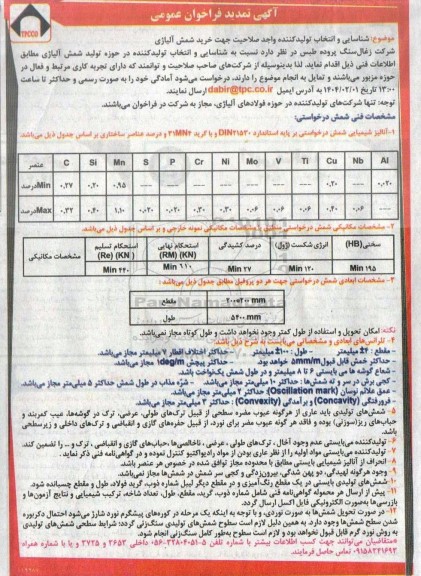 آگهی تمدید فراخوان عمومی
TPCCO
موضوع: شناسایی و انتخاب تولیدکننده واجد صلاحیت جهت خرید شمش آلیاژی
شرکت زغال‌سنگ پروده طبس در نظر دارد نسبت به شناسایی و انتخاب تولیدکننده در حوزه تولید شمش آلیاژی مطابق
اطلاعات فنی ذیل اقدام نماید. لذا بدینوسیله از شرکت‌های صاحب صلاحیت و توانمند که دارای تجربه کاری مرتبط و فعال در
حوزه مزبور می‌باشند و تمایل به انجام موضوع را دارند، درخواست می‌شود آمادگی خود را به صورت رسمی و حداکثر تا ساعت
۱۳:۰۰ تاریخ ۱۴۰۴/۰۲/۰۱ به آدرس ایمیل dabir@tpc.co.ir ارسال نمایند.
توجه: تنها شرکت‌های تولیدکننده در حوزه فولادهای آلیاژی، مجاز به شرکت در فراخوان می‌باشند.
مشخصات فنی شمش درخواستی:
۱-آنالیز شیمیایی شمش درخواستی بر پایه استاندارد DIN۲۱۵۳۰ و با گرید ۳۱MN۴ و درصد عناصر ساختاری بر اساس جدول ذیل می‌باشد.
عنصر C Si Mn S P Cr Ni Mo V Ti Cu Nb Al
درصدMin ۰.۲۷ ۰.۲۰ ۰.۹۵ --- --- --- --- --- --- --- ۰.۲۰ --- ۰.۰۲۰
درصدMax ۰.۳۲ ۰.۴۰ ۱.۱۰ ۰.۰۲۰ ۰.۰۲۰ ۰.۳۰ ۰.۳۰ ۰.۰۶ ۰.۰۶ ۰.۰۶ ۰.۴۰ ۰.۰۶ ---
۲- مشخصات مکانیکی شمش درخواستی و بر اساس جدول ذیل می‌باشد.
مشخصات مکانیکی استحکام تسلیم (Re) (KN) استحکام نهایی (RM) (KN) درصد کشیدگی انرژی شکست (ژول) سختی(HB)
Min ۴۴۰ Min ۱۱۰ Min ۲۷ Min ۱۲۰ Min ۱۹۵
۳- مشخصات ابعادی شمش درخواستی جهت هر دو پروفیل مطابق جدول ذیل می‌باشد:
مقطع ۲۰۰*۲۰۰ mm
طول ۵۴۰۰ mm
نکته: امکان تحویل و استفاده از طول کمتر وجود نخواهد داشت و طول کوتاه مجاز نمی‌باشد.
۴- تلرانس‌های ابعادی و مشخصاتی می‌بایست به شرح ذیل باشد.
- مقطع : ۴± میلیمتر - طول : ۱۰۰± میلیمتر - حداکثر اختلاف اقطار ۷ میلیمتر مجاز می‌باشد.
- حداکثر خمش قابل قبول ۵mm/m خواهد بود. - حداکثر پیچش ۱deg/m مجاز می‌باشد.
- شعاع گوشه ها می بایستی ۶ تا ۸ میلیمتر و در طول شمش یکنواخت باشد.
- کجی برش در سر و ته شمش‌ها : حداکثر ۱۰ میلیمتر مجاز می‌باشد.
- عمق علائم نوسان (Oscillation mark): حداکثر ۲ میلیمتر مجاز می‌باشد.
- فرورفتگی (Concavity) و برآمدگی (Convexity) : حداکثر ۳ میلیمتر مجاز می‌باشد.
۵- شمش‌های تولیدی باید عاری از هرگونه عیوب مضره سطحی از قبیل ترک‌های طولی، عرضی، ترک در گوشه‌ها، عیب کمربند و
حباب‌های ریز(سوزنی) بوده و فاقد هر گونه عیوب مضر برای نورد، از قبیل حفره‌های گازی و انقباضی و ترک‌های داخلی و زیرسطحی
باشد.
۶- تولیدکننده می‌بایستی عدم وجود آخال ، ترک‌های طولی ، عرضی ، ناخالصی‌ها ،حباب‌های گازی و انقباضی ، ترک و ... را تضمین کند.
۷- تولیدکننده می‌بایستی مواد اولیه را از نظر عاری بودن از مواد رادیواکتیو کنترل نموده و در گواهینامه فنی ذکر نماید.
۸- انحراف از آنالیز شیمیایی بایستی مطابق با محدوده مجاز توافق شده در خصوص هر عنصر باشد.
۹- وجود هرگونه لهیدگی، دو پهن شدگی، بیرون‌زدگی و کجی سر شمش در شمش‌ها مجاز نمی‌باشد.
۱۰- شمش‌های تولیدی بایستی در یک مقطع رنگ‌آمیزی و در مقطع دیگر لیبل شماره ذوب، گرید فولاد، طول و مقطع چسبانده شود.
۱۱- پیش از ارسال هر محموله گواهی‌نامه فنی شامل شماره ذوب، گرید، مقطع، طول، تعداد شاخه، ترکیب شیمیایی و نتایج آزمون‌ها و
بازرسی‌ها به‌صورت الکترونیکی فایل اکسل ارسال گردد.
۱۲- در صورت تحویل شمش‌ها به صورت نوردی، و با توجه به اینکه یک مرحله در کوره‌های پیشگرم نورد شارژ می‌شود احتمال دکربوره
شدن سطح شمش‌ها وجود دارد. به همین دلیل لازم است سطوح شمش‌های تولیدی سنگ‌زنی گردد؛ شرایط سطحی شمش‌های تولیدی
به روش نورد گرم قابل قبول نخواهد بود و لازم است سطوح به‌طور کامل سنگ‌زنی انجام شود.
متقاضیان می‌توانند جهت کسب اطلاعات بیشتر با شماره تلفن ۵-۳۲۸۰۴۰۵۱-۰۵۶ داخلی ۲۶۵۳ و ۲۷۲۵ و یا با شماره همراه
۰۹۱۵۸۲۲۱۶۹۳ تماس حاصل فرمایند.